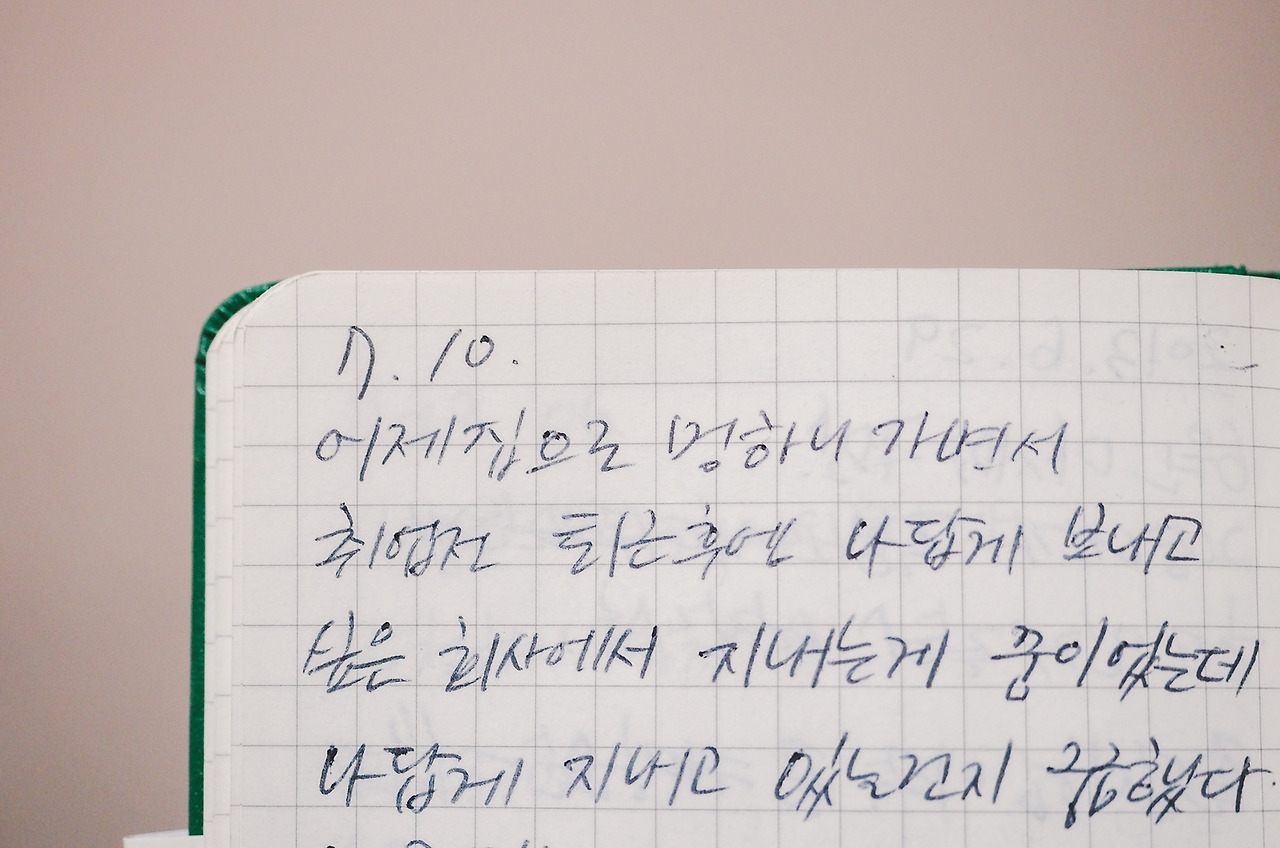 7. 10.
어제 집으로 멍하니 가면서
취업전 퇴근후에 나답게 보내고
싶은 회사에서 지내는게 꿈이었는데
나답게 지내고 있는건지 궁금했다.